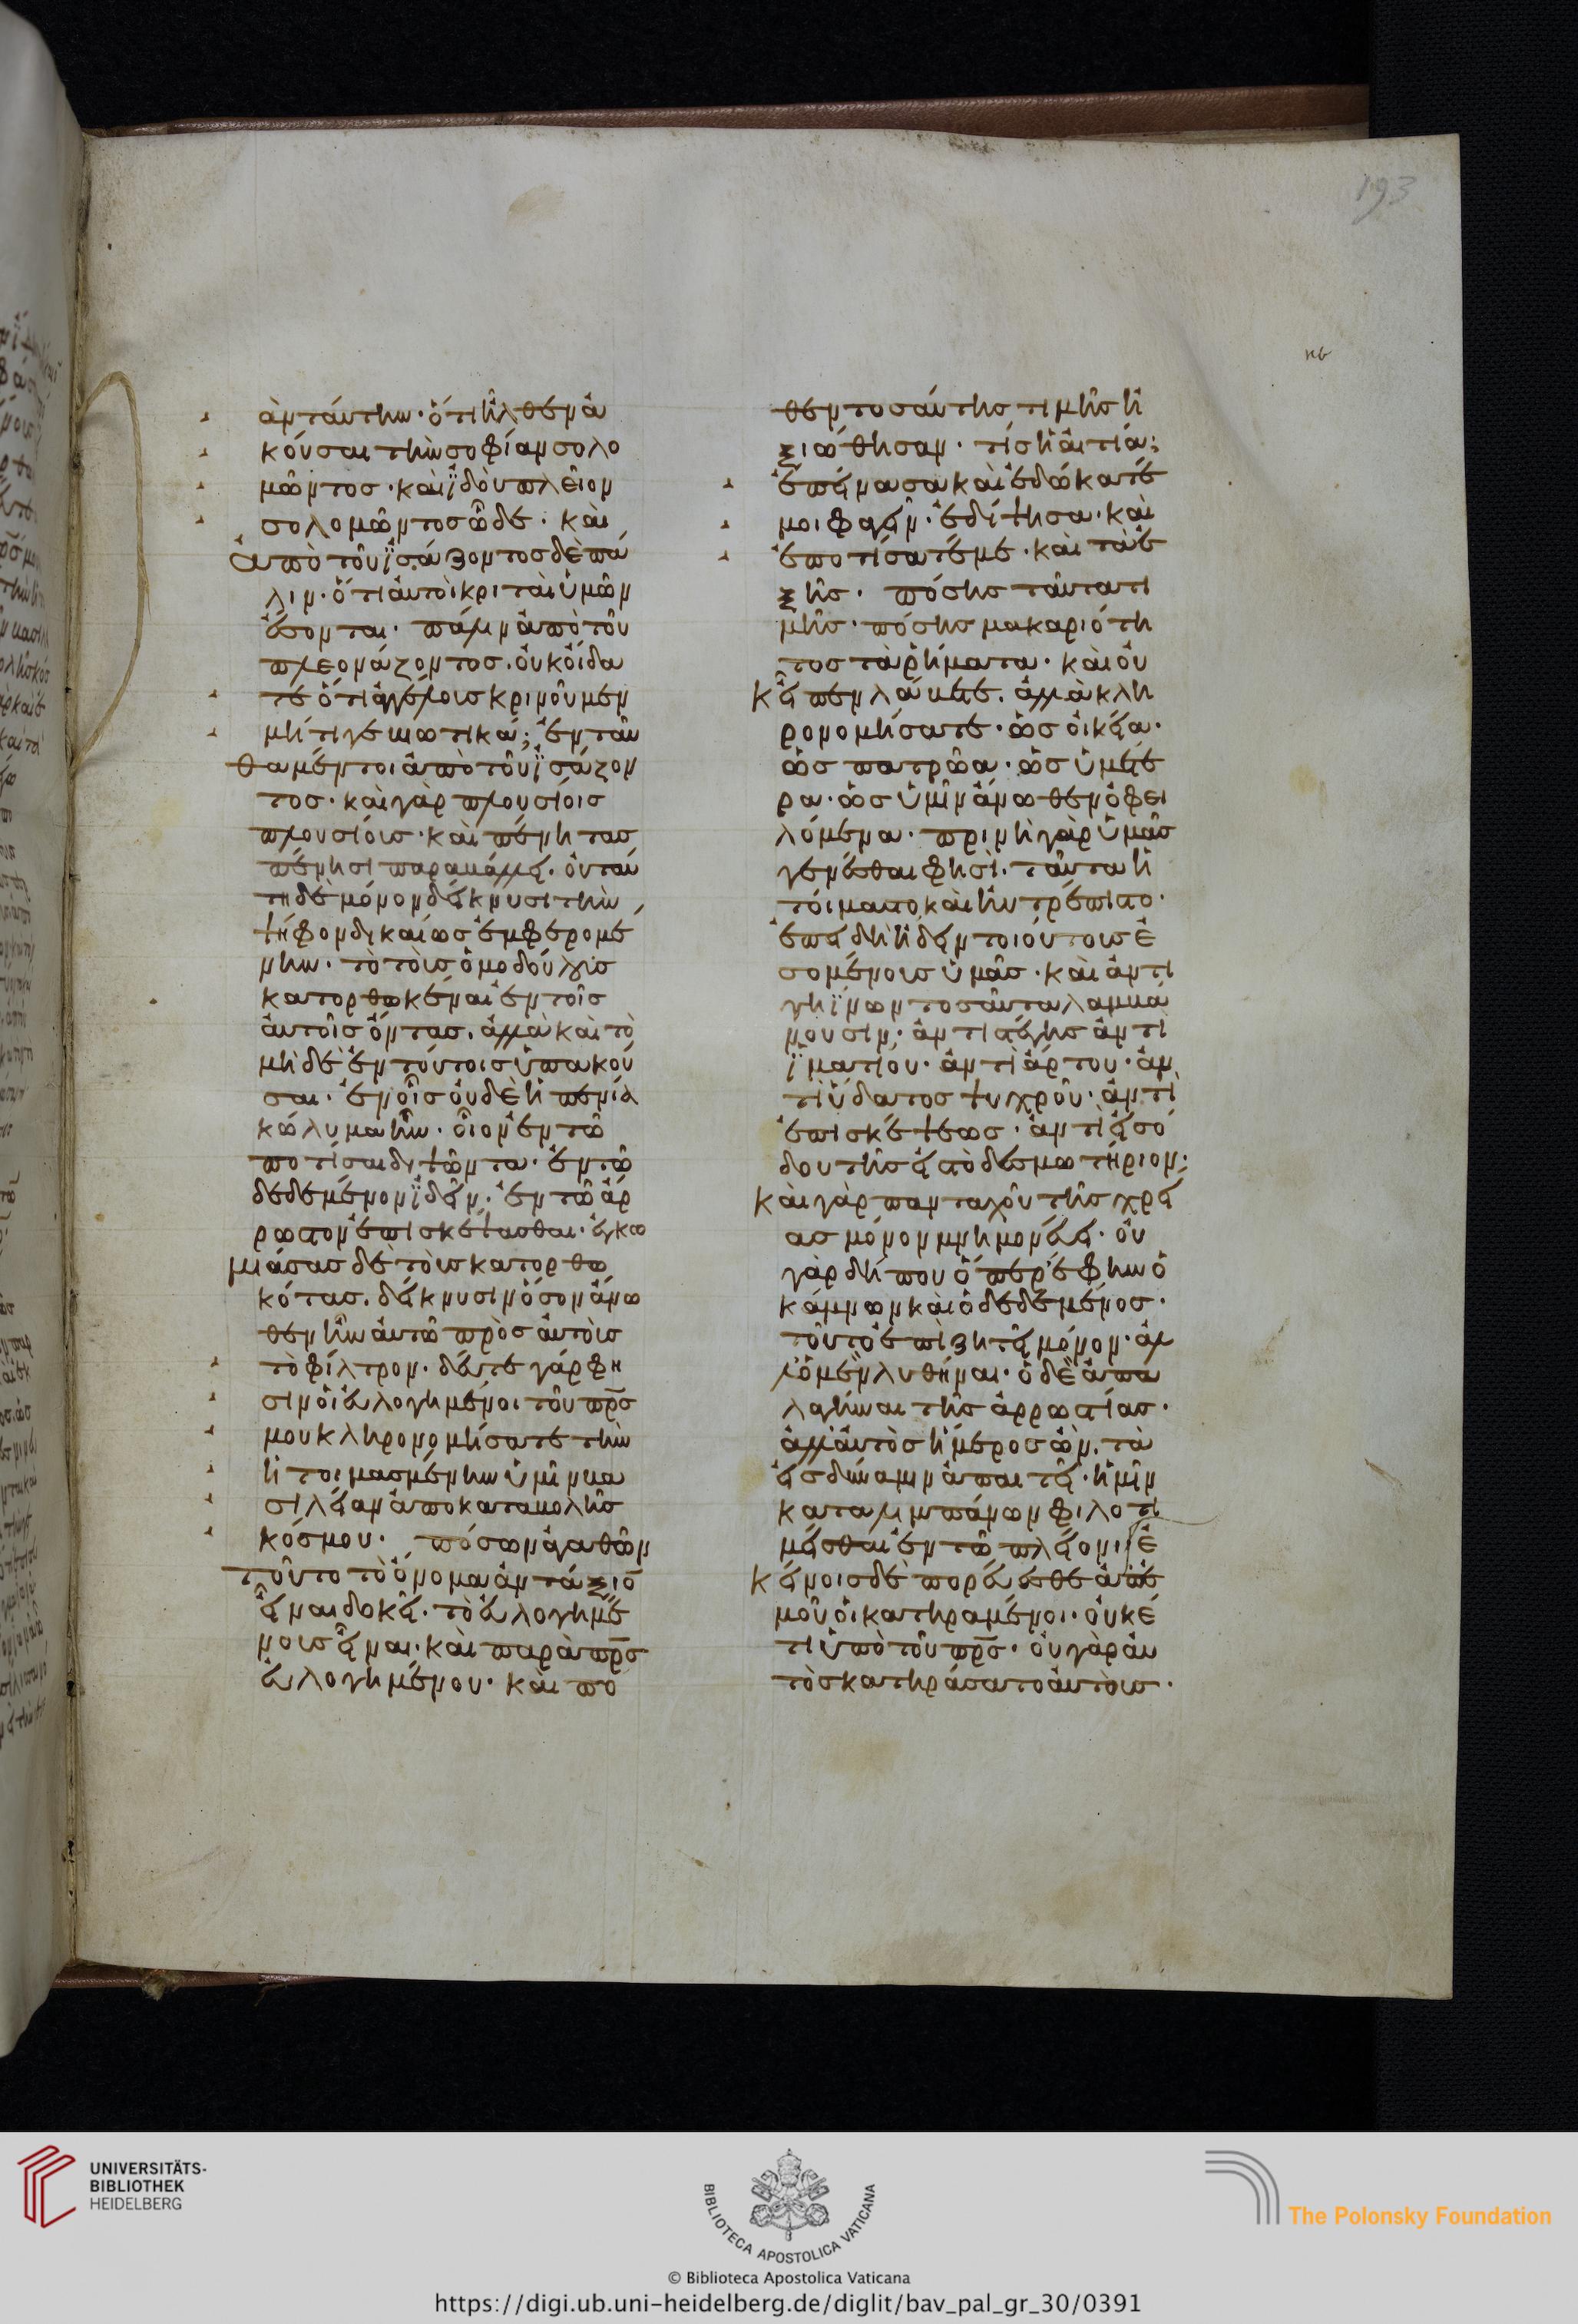 ἀνταύτην· ὅτι ἦλθεν ἀ
κοῦσαι τὴν σοφίαν σολο
μῶντος· καὶ ἰδοὺ πλεῖον
σολομῶντος ὧδε· καὶ
ἀπὸ τοῦ ἰσάζοντος δὲ πά
λιν· ὅτι αὐτοὶ κριταὶ ὑμῶν
ἔσονται· πάλιν ἀπὸ τοῦ
πλεονάζοντος. οὐκ οἴδα
τε ὅτι ἀγγέλους κρινοῦμεν
μήτι γε βιωτικά; ἐνταῦ
θα μέντοι ἀπὸ τοῦ ἰσάζον
τος· καὶ γὰρ πλουσίοις
πλουσίους· καὶ πένητας
πένησι παραβάλλει. οὐ ταύ
τη δὲ μόνον δείκνυσι τὴν
ψῆφον δικαίως ἐκφερομέ
νην· τὸ τοὺς ὁμοδούλους
κατορθωκέναι ἐν τοῖς
αὐτοῖς ὄντας. ἀλλὰ καὶ τὸ
μηδὲ ἐν τούτοις ὑπακού
σαι· ἐν οἷς οὐδὲ ἡ πενία
κώλυμα ἦν· οἷον ἐν τῶ
ποτίσαι διψῶντα· ἐν τῶ
δεδεμένον ἰδεῖν· ἐν τῶ ἄρ
ρωστον ἐπισκέψασθαι· ἐγκω
μιάσας δὲ τοὺς κατορθω
κότας. δείκνυσιν ὅσον ἄνω
θεν ἦν αὐτῶ πρὸς αὐτοὺς
τὸ φίλτρον· δεῦτε γάρ φη
σιν οἱ εὐλογημένοι τοῦ π̅ρ̅ς̅
μου κληρονομήσατε τὴν
ἡτοιμασμένην ὑμῖν βα
σιλείαν ἀπὸ καταβολῆς
κόσμου· πόσων ἀγαθῶν
τοῦτο τὸ ὄνομα ἀντάξιο̅
εἶναι δοκεῖ· τὸ εὐλογημέ
νους εἶναι· καὶ παρὰ π̅ρ̅ς̅
εὐλογημένου· καὶ πό
θεν τοσαύτης τιμῆς ἠ
ξιώθησαν· τίς ἡ αἰτία;
ἐπείνασα καὶ ἐδώκατέ
μοι φαγεῖν· ἐδίψησα· καὶ
ἐποτίσατέ με· καὶ τὰ ἑ
ξῆς· πόσης ταῦτα τι
μῆς· πόσης μακαριότη
τος τὰ ῥήματα· καὶ οὐ
κ εἶπεν λάβετε. ἀλλὰ κλη
ρονομήσατε· ὡς οἰκεῖα·
ὡς πατρῶα· ὡς ὑμέτε
ρα· ὡς ὑμῖν ἄνωθεν ὀφει
λόμενα· πρινὴ γὰρ ὑμᾶς
γενέσθαι φησὶ. ταῦτα ἡ
τοίμαστο καὶ ηὐτρέπιστο·
ἐπειδὴ ἤδειν τοιούτους ἐ
σομένους ὑμᾶς· καὶ ἀντὶ
τίνων τοσαῦτα λαμβά
νουσιν· ἀντὶ στέγης ἀντὶ
ἱματίου· ἀντὶ ἄρτου· ἀν
τὶ ὕδατος ψυχροῦ· ἀντὶ
ἐπισκέψεως· ἀντὶ εἰσό
δου τῆς εἰς τὸ δεσμωτήριον·
καὶ γὰρ πανταχοῦ τῆς χρεί
ας μόνον μνημονεύει· οὐ
γὰρ δήπου ὅπερ ἔφην ὁ
κάμνων καὶ ὁ δεδεμένος·
τοῦτο ἐπιζητεῖ μόνον· ἀλ
λ' ὁ μὲν λυθῆναι· ὁ δὲ ἀπα
λαγῆναι τῆς ἀρρωστίας·
ἀλλ' αὐτὸς ἥμερος ὢν. τὰ
εἰς δύναμιν ἀπαιτεῖ· ἡμῖν
καταλιμπάνων φιλοτι
μεῖσθαι ἐν τῶ πλείονι ἐ
κείνοις δὲ πορεύεσθε ἀπ' ἐ
μοῦ οἱ κατηραμένοι· οὐκέ
τι ὑπὸ τοῦ π̅ρ̅ς̅· οὐ γὰρ αὐ
τὸς κατηράσατο αὐτούς·
193
UNIVERSITÄTS-
BIBLIOTHEK
HEIDELBERG
BIBLIOTECA APOSTOLICA VATICANA
© Biblioteca Apostolica Vaticana
The Polonsky Foundation
https://digi.ub.uni-heidelberg.de/diglit/bav_pal_gr_30/0391